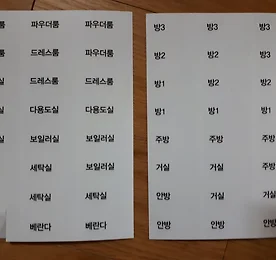 파우더룸 파우더룸
드레스룸 파우더룸
드레스룸 드레스룸
다용도실 다용도실
보일러실 보일러실
세탁실 보일러실
세탁실 세탁실
베란다 베란다
방3 방3 방3
방2 방2 방3
방1 방2 방2
방1 방1 방1
주방 주방 주방
거실 거실 주방
안방 거실 거실
안방 안방 안방